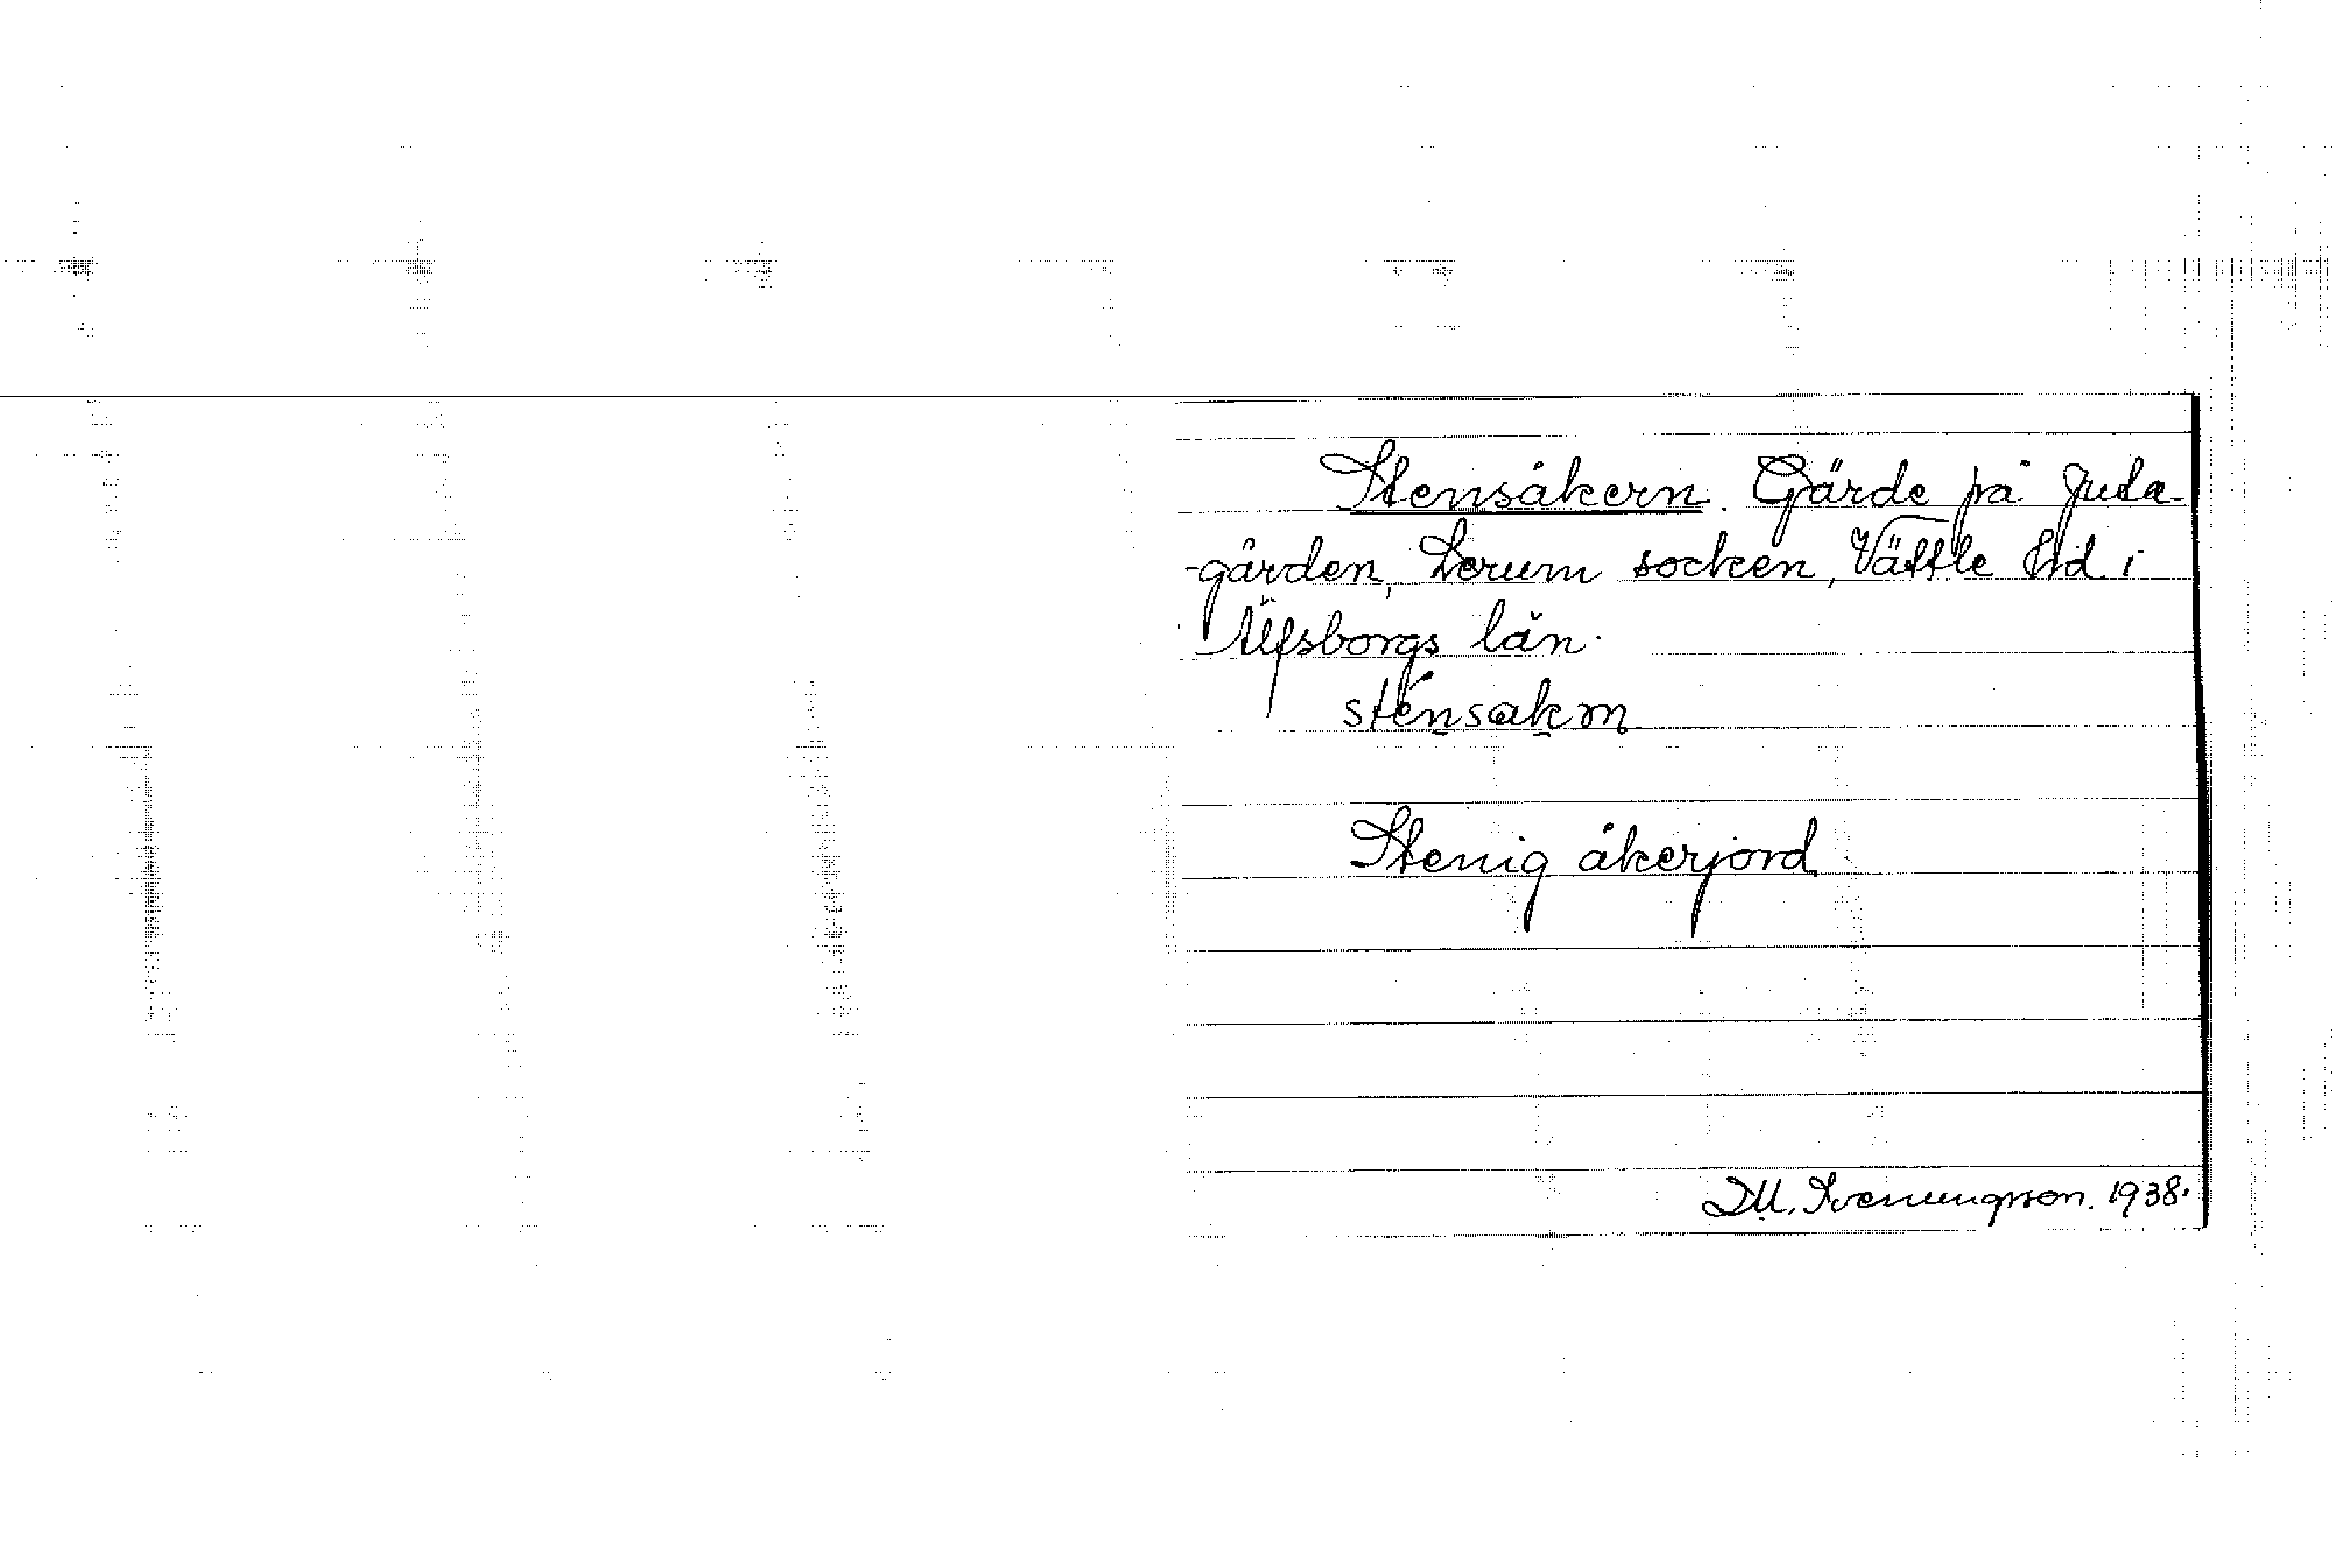 Stensåkern. Gärde på Juda-
-gården, Lerum socken, Vättle hd i
Älfsborgs län.
sténsakm
Stenig åkerjord.
1938.